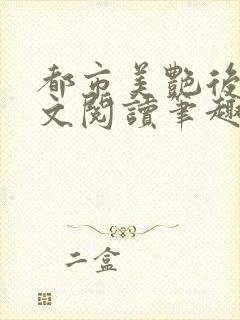 都市美艷後
文閱讀筆趣
二盒